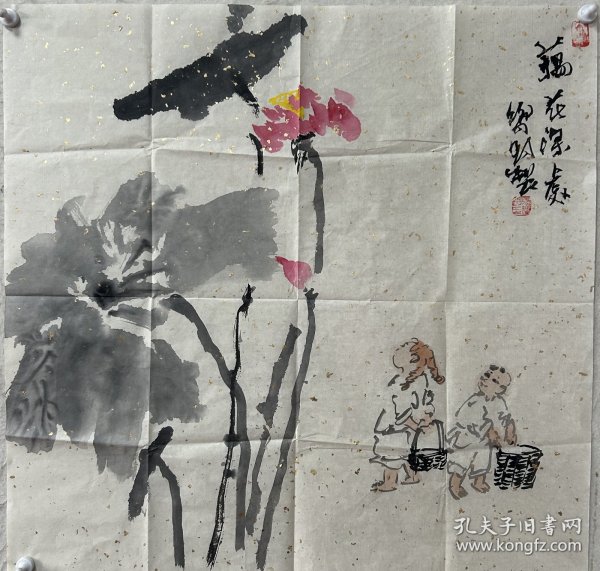 藕花深處
製
孔夫子旧书网
www.kongfz.com